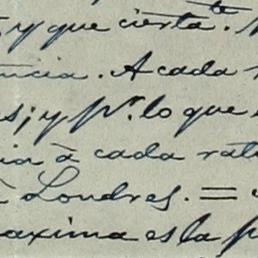 , y que cierta.te
ncia. A cada
s; y pr. lo que
ia à cada rat
à Londres. =
axima es la p